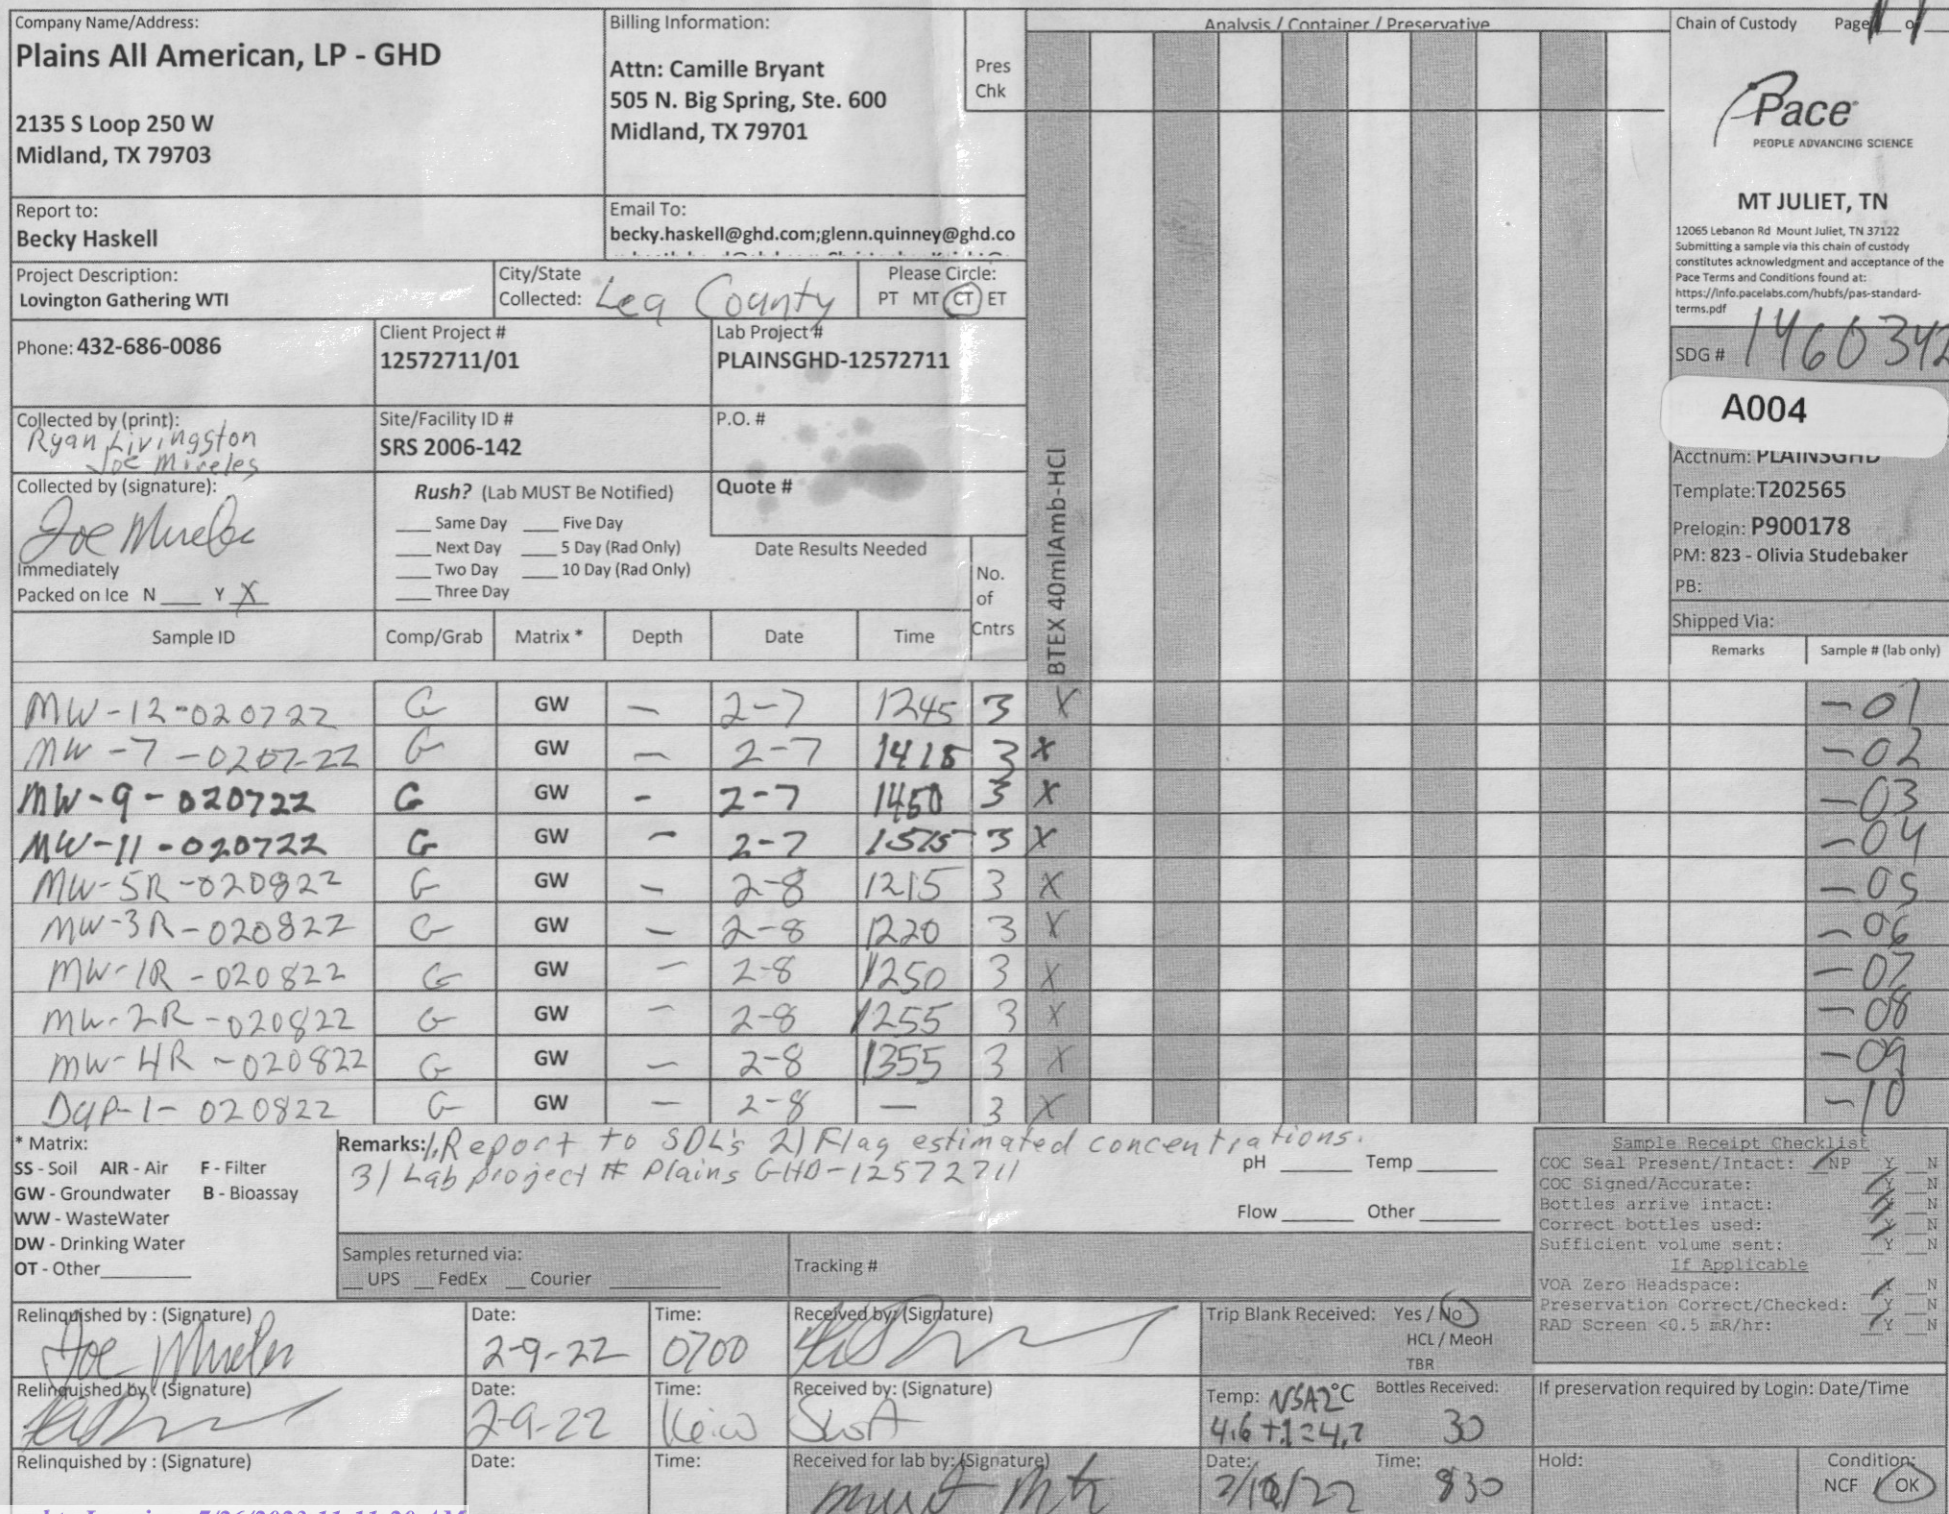 Company Name/Address:
Plains All American, LP - GHD
2135 S Loop 250 W
Midland, TX 79703
Billing Information:
Attn: Camille Bryant
505 N. Big Spring, Ste. 600
Midland, TX 79701
Pres
Chk
Analysis / Container / Preservative
Chain of Custody Page 1 of 1
Pace
PEOPLE ADVANCING SCIENCE
MT JULIET, TN
12065 Lebanon Rd Mount Juliet, TN 37122
Submitting a sample via this chain of custody
constitutes acknowledgment and acceptance of the
Pace Terms and Conditions found at:
https://info.pacelabs.com/hubfs/pas-standard-
terms.pdf
Report to:
Becky Haskell
Email To:
becky.haskell@ghd.com;glenn.quinney@ghd.co
Project Description:
Lovington Gathering WTI
City/State
Collected: Lea County
Please Circle:
PT MT CT ET
Phone: 432-686-0086
Client Project #
12572711/01
Lab Project #
PLAINSGHD-12572711
SDG # 1460342
A004
Acctnum: PLAINSGHD
Template:T202565
Prelogin: P900178
PM: 823 - Olivia Studebaker
PB:
Shipped Via:
Collected by (print):
Ryan Livingston
Joe Mireles
Site/Facility ID #
SRS 2006-142
P.O. #
Collected by (signature):
Joe Mireles
Immediately
Packed on Ice N ___ Y X
Rush? (Lab MUST Be Notified)
___ Same Day ___ Five Day
___ Next Day ___ 5 Day (Rad Only)
___ Two Day ___ 10 Day (Rad Only)
___ Three Day
Quote #
Date Results Needed
No.
of
Cntrs
BTEX 40mlAmb-HCl
Sample ID Comp/Grab Matrix * Depth Date Time Remarks Sample # (lab only)
MW-12-020722 G GW — 2-7 1245 3 X -01
MW-7-020722 G GW — 2-7 1415 3 X -02
MW-9-020722 G GW - 2-7 1450 3 X -03
MW-11-020722 G GW - 2-7 1515 3 X -04
MW-5R-020822 G GW — 2-8 1215 3 X -05
MW-3R-020822 G GW — 2-8 1220 3 X -06
MW-1R-020822 G GW — 2-8 1250 3 X -07
MW-2R-020822 G GW — 2-8 1255 3 X -08
MW-4R-020822 G GW — 2-8 1355 3 X -09
Dup-1-020822 G GW — 2-8 — 3 X -10
* Matrix:
SS - Soil AIR - Air F - Filter
GW - Groundwater B - Bioassay
WW - WasteWater
DW - Drinking Water
OT - Other_________
Remarks: 1. Report to SDL's 2) Flag estimated concentrations.
3) Lab project # Plains GHD-12572711
pH ______ Temp ______
Flow ______ Other ______
Sample Receipt Checklist
COC Seal Present/Intact: __NP __Y __N
COC Signed/Accurate: __Y __N
Bottles arrive intact: __Y __N
Correct bottles used: __Y __N
Sufficient volume sent: __Y __N
If Applicable
VOA Zero Headspace: __Y __N
Preservation Correct/Checked: __Y __N
RAD Screen <0.5 mR/hr: __Y __N
Samples returned via:
__ UPS __ FedEx __ Courier ________
Tracking #
Relinquished by : (Signature)
Joe Mireles
Date:
2-9-22
Time:
0700
Received by: (Signature)
Trip Blank Received: Yes / No
HCL / MeoH
TBR
Relinquished by : (Signature)
Date:
2-9-22
Time:
Received by: (Signature)
Temp: NSA2°C
4.6+.1=4.7
Bottles Received:
30
If preservation required by Login: Date/Time
Relinquished by : (Signature)
Date:
Time:
Received for lab by: (Signature)
Date:
2/10/22
Time:
830
Hold:
Condition:
NCF / OK
7/26/2023 11:11:20 AM